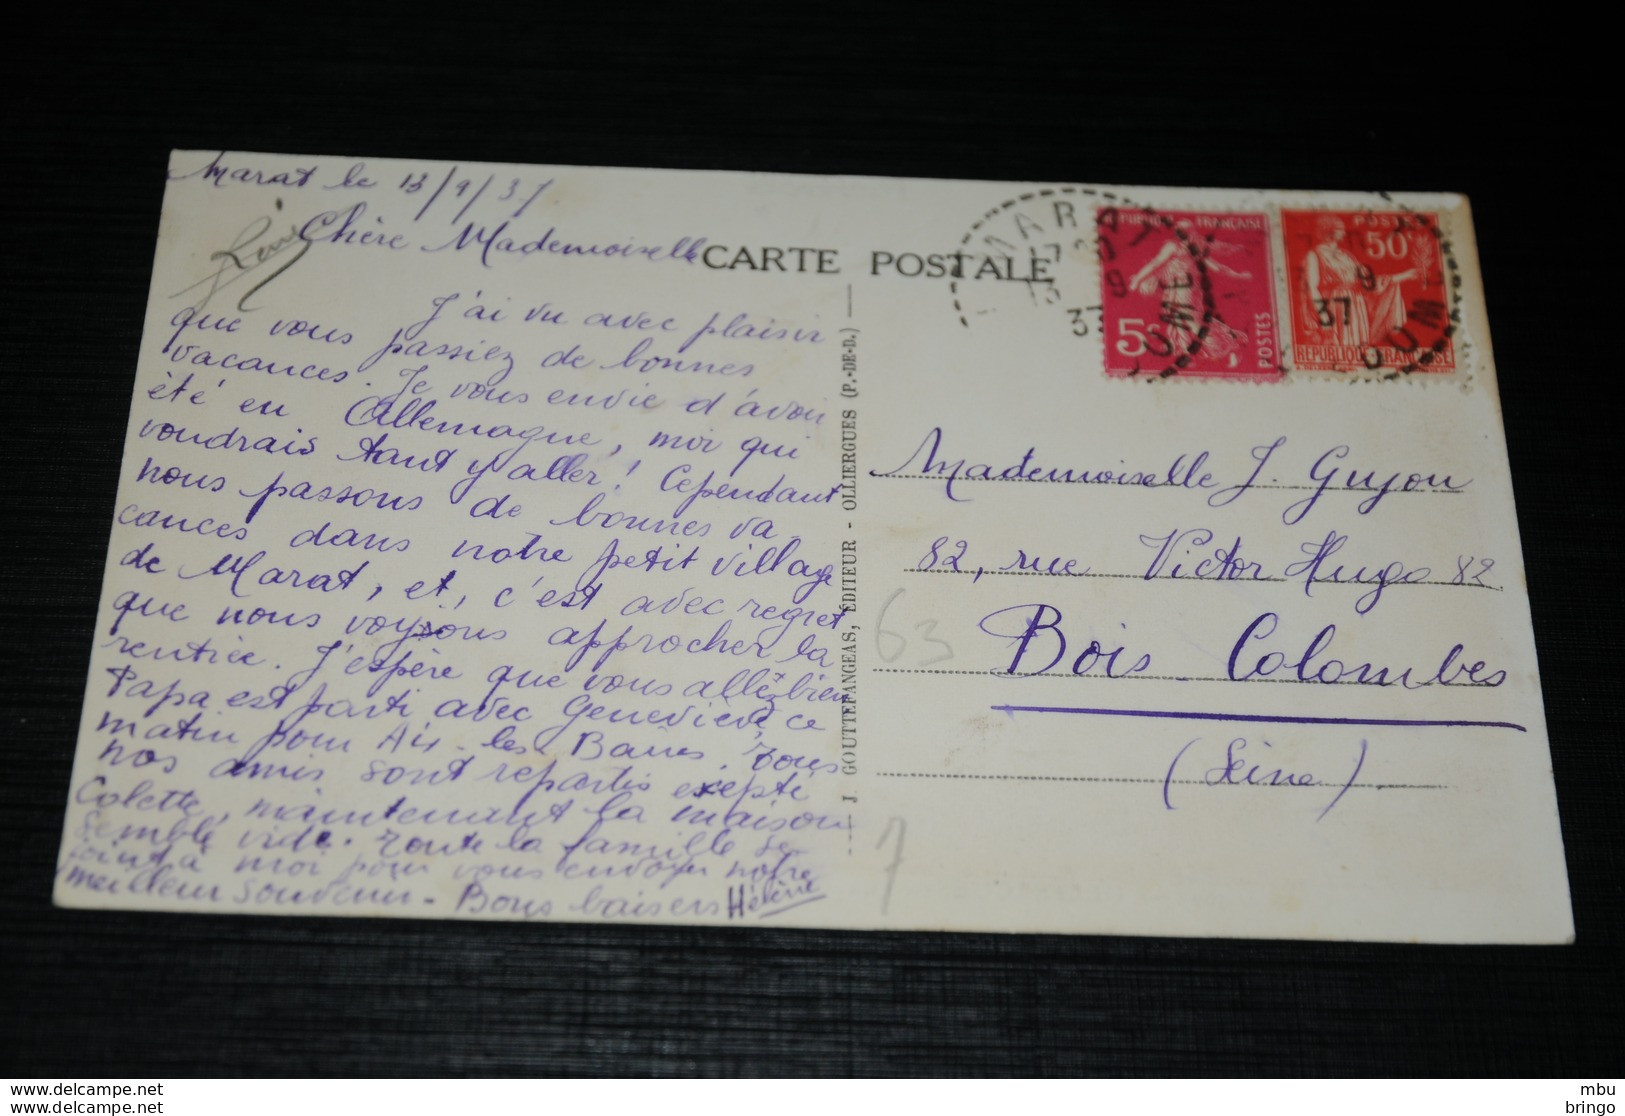 Marat le 13/9/37
Chère Mademoiselle
J'ai vu avec plaisir
que vous passiez de bonnes
vacances. Je vous envie d'avoir
été en Allemagne, moi qui
voudrais tant y aller! Cependant
nous passons de bonnes va_
cances dans notre petit village
de Marat, et, c'est avec regret
que nous voyons approcher la
rentrée. J'espère que vous allez bien
Papa est parti avec Geneviève, ce
matin pour Aix-les Bains. Tous
nos amis sont repartis exepté
Colette, maintenant la maison
semble vide. Toute la famille se
joint à moi pour vous envoyer notre
meilleur souvenir - Bons baisers Hélène
CARTE POSTALE
J. GOUTTEFANGEAS, EDITEUR - OLLIERGUES (P.-DE-D.)
MARAT
13 9 37
DOME
REPUBLIQUE FRANÇAISE
5c
POSTES
POSTES
50c
9
37
DOME
REPUBLIQUE FRANÇAISE
Mademoiselle J. Guyon
82, rue Victor Hugo 82
Bois_Colombes
(Seine)
63
7
mbu
bringo
delcampe.net
mbu
bringo